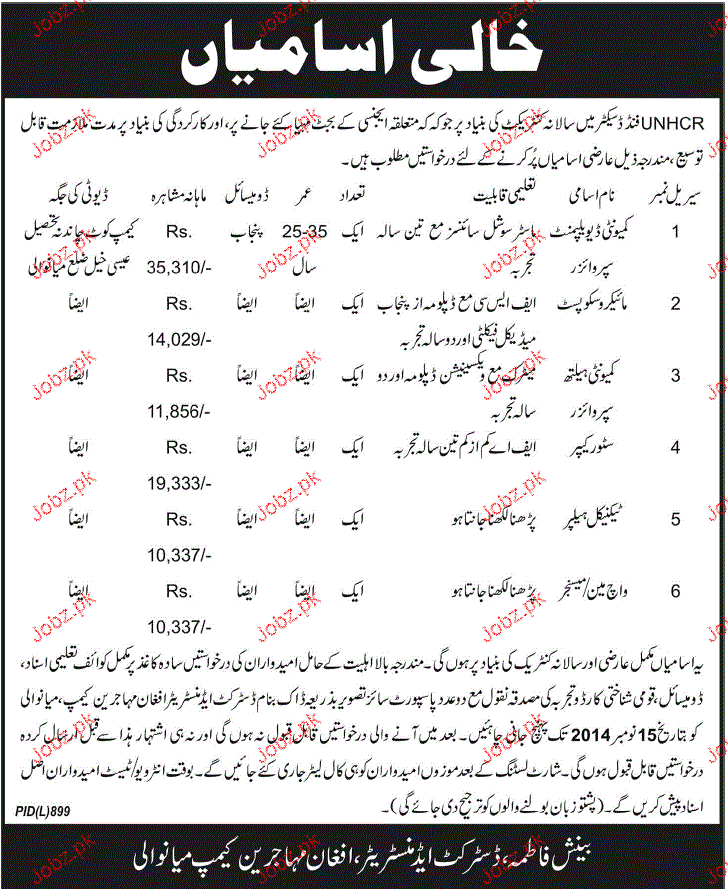 خالی اسامیاں
UNHCR فنڈڈ سیکٹر میں سالانہ کنٹریکٹ کی بنیاد پر جو کہ متعلقہ ایجنسی کے بجٹ مہیا کئے جانے پر، اور کارکردگی کی بنیاد پر مدت ملازمت قابل
توسیع، مندرجہ ذیل عارضی اسامیاں پُر کرنے کے لئے درخواستیں مطلوب ہیں۔
سیریل نمبر نام اسامی تعلیمی قابلیت تعداد عمر ڈومیسائل ماہانہ مشاہرہ ڈیوٹی کی جگہ
1 کمیونٹی ڈیویلپمنٹ ماسٹر سوشل سائنسز مع تین سالہ ایک 25-35 پنجاب Rs. کیمپ کوٹ چاندنہ تحصیل
سپروائزر تجربہ سال 35,310/- عیسیٰ خیل ضلع میانوالی
2 مائیکروسکوپسٹ ایف ایس سی مع ڈپلومہ از پنجاب ایک ایضاً ایضاً Rs. ایضاً
میڈیکل فیکلٹی اور دو سالہ تجربہ 14,029/-
3 کمیونٹی ہیلتھ میٹرک مع ویکسینیشن ڈپلومہ اور دو ایک ایضاً ایضاً Rs. ایضاً
سپروائزر سالہ تجربہ 11,856/-
4 سٹور کیپر ایف اے کم از کم تین سالہ تجربہ ایک ایضاً ایضاً Rs. ایضاً
19,333/-
5 ٹیکنیکل ہیلپر پڑھنا لکھنا جانتا ہو ایک ایضاً ایضاً Rs. ایضاً
10,337/-
6 واچ مین/میسنجر پڑھنا لکھنا جانتا ہو ایک ایضاً ایضاً Rs. ایضاً
10,337/-
یہ اسامیاں مکمل عارضی اور سالانہ کنٹریکٹ کی بنیاد پر ہوں گی۔ مندرجہ بالا اہلیت کے حامل امیدواران کی درخواستیں سادہ کاغذ پر مکمل کوائف تعلیمی اسناد،
ڈومیسائل، قومی شناختی کارڈ و تجربہ کی مصدقہ نقول مع دو عدد پاسپورٹ سائز تصویر بذریعہ ڈاک بنام ڈسٹرکٹ ایڈمنسٹریٹر افغان مہاجرین کیمپ، میانوالی
کو بتاریخ 15 نومبر 2014 تک پہنچ جانی چاہئیں۔ بعد میں آنے والی درخواستیں قابل قبول نہ ہوں گی اور نہ ہی اشتہار ہذا سے قبل ارسال کردہ
درخواستیں قابل قبول ہوں گی۔ شارٹ لسٹنگ کے بعد موزوں امیدواران کو ہی کال لیٹر جاری کئے جائیں گے۔ بوقت انٹرویو/ٹیسٹ امیدواران اصل
اسناد پیش کریں گے۔ (پشتو زبان بولنے والوں کو ترجیح دی جائے گی)۔
PID(L)899
بینش فاطمہ، ڈسٹرکٹ ایڈمنسٹریٹر، افغان مہاجرین کیمپ میانوالی
Jobz.pk